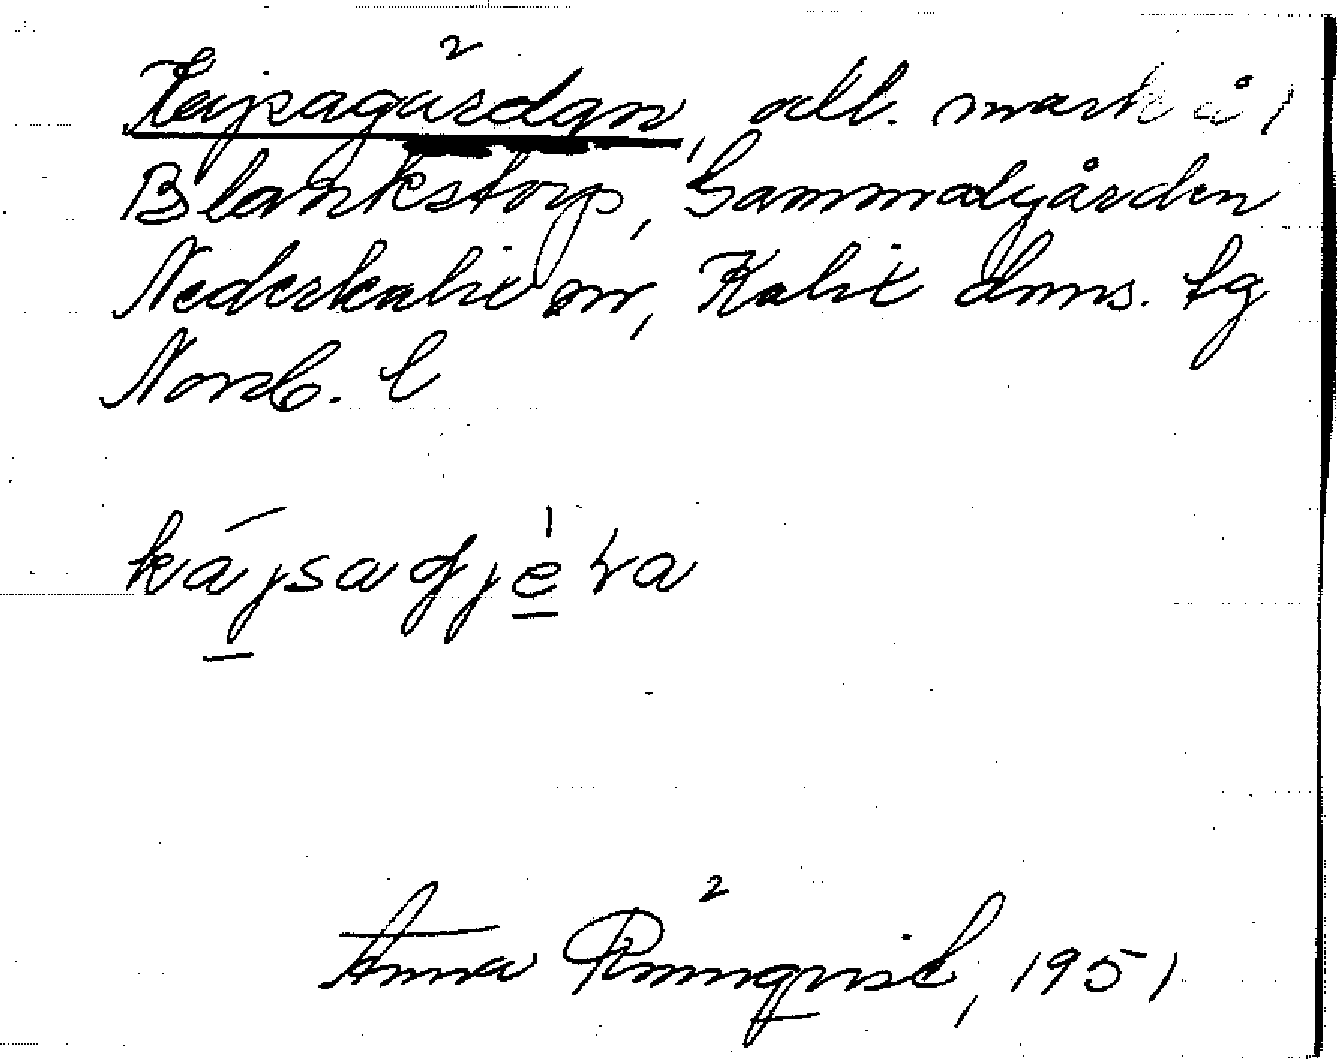 Kajsagårdan, odl. mark å
Blankstorp, Gammalgården
Nederkalix sn, Kalix dnns. tg
Norrb. l
kájsagjèra
Anna Rönnqvist, 1951